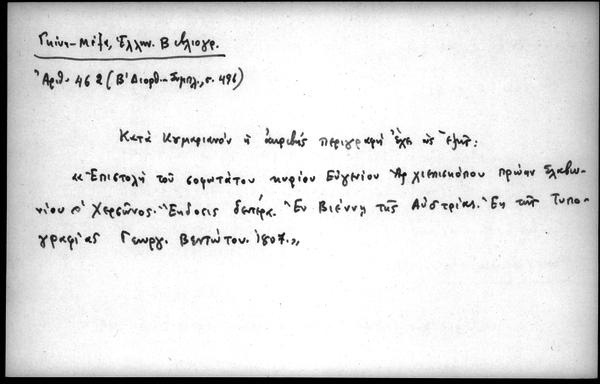 Γκίνη-Μέξα, Ἑλλην. Βιβλιογρ.
Ἀριθ. 462 (Β' Διορθ.-Συμπλ., σ. 496)
Κατὰ Κυμαριανόν ἡ ἀκριβής περιγραφή ἔχει ὡς ἑξῆς:
«Ἐπιστολή τοῦ σοφωτάτου κυρίου Εὐγενίου Ἀρχιεπισκόπου πρώην Σλαβω-
νίου Χερσῶνος. Ἔκδοσις δευτέρα. Ἐν Βιέννῃ τῆς Αὐστρίας. Ἐκ τῆς Τυπο-
γραφίας Γεωργ. Βεντώτου. 1807.»